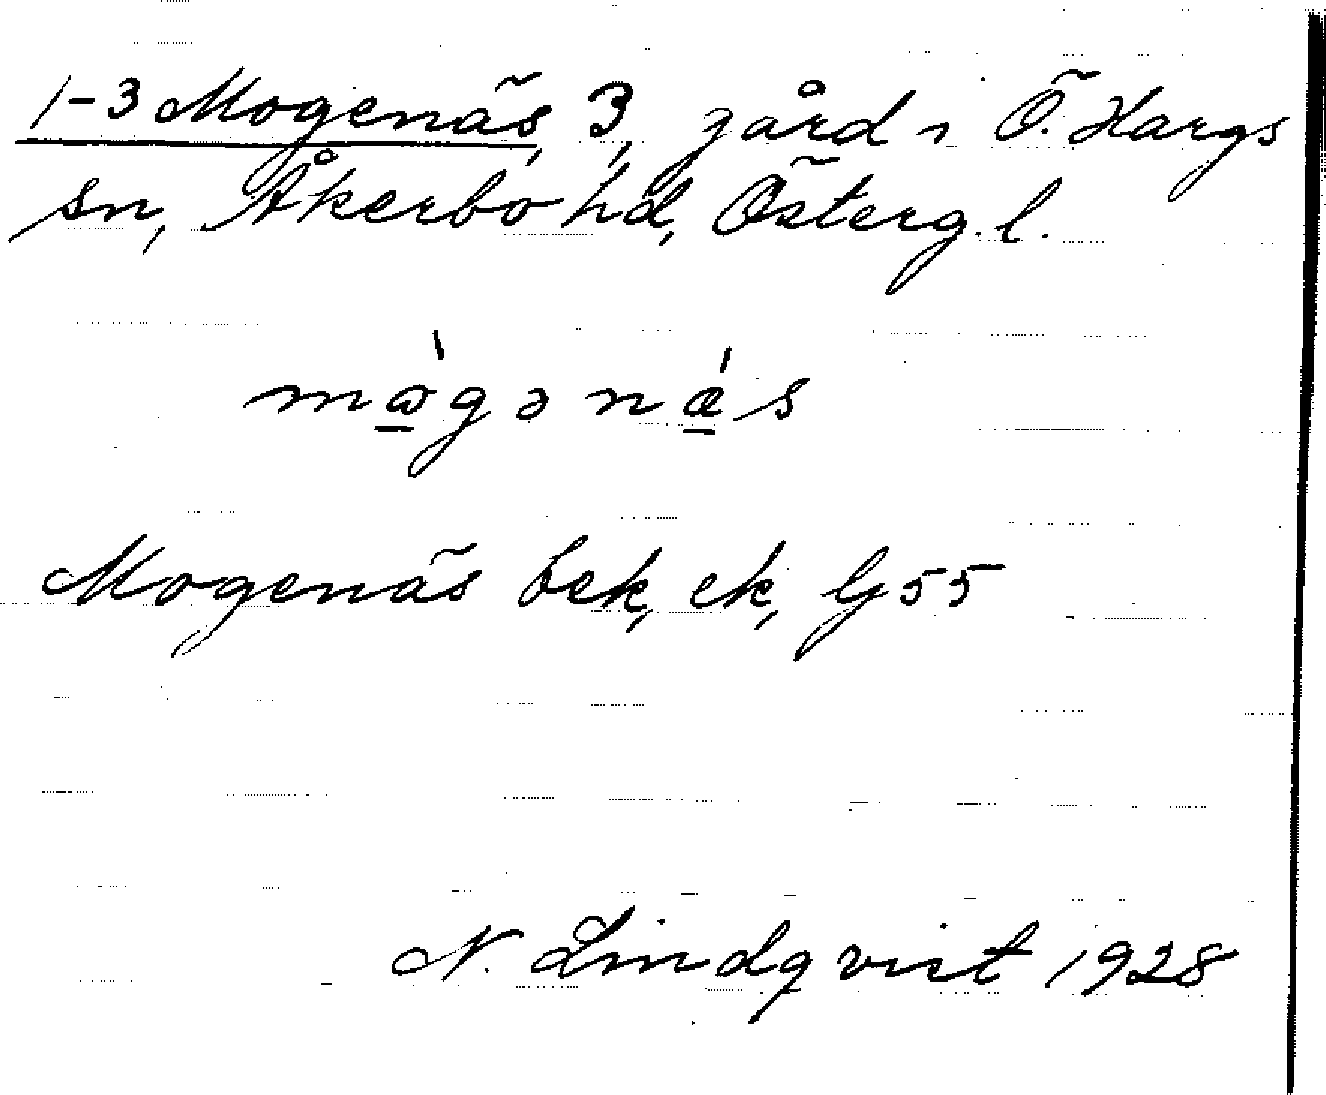 1-3 Mogenäs, 3, gård i Ö. Hargs
sn, Åkerbo hd, Österg. l.
mògənǽs
Mogenäs bek, ek, G 55
N. Lindqvist 1928